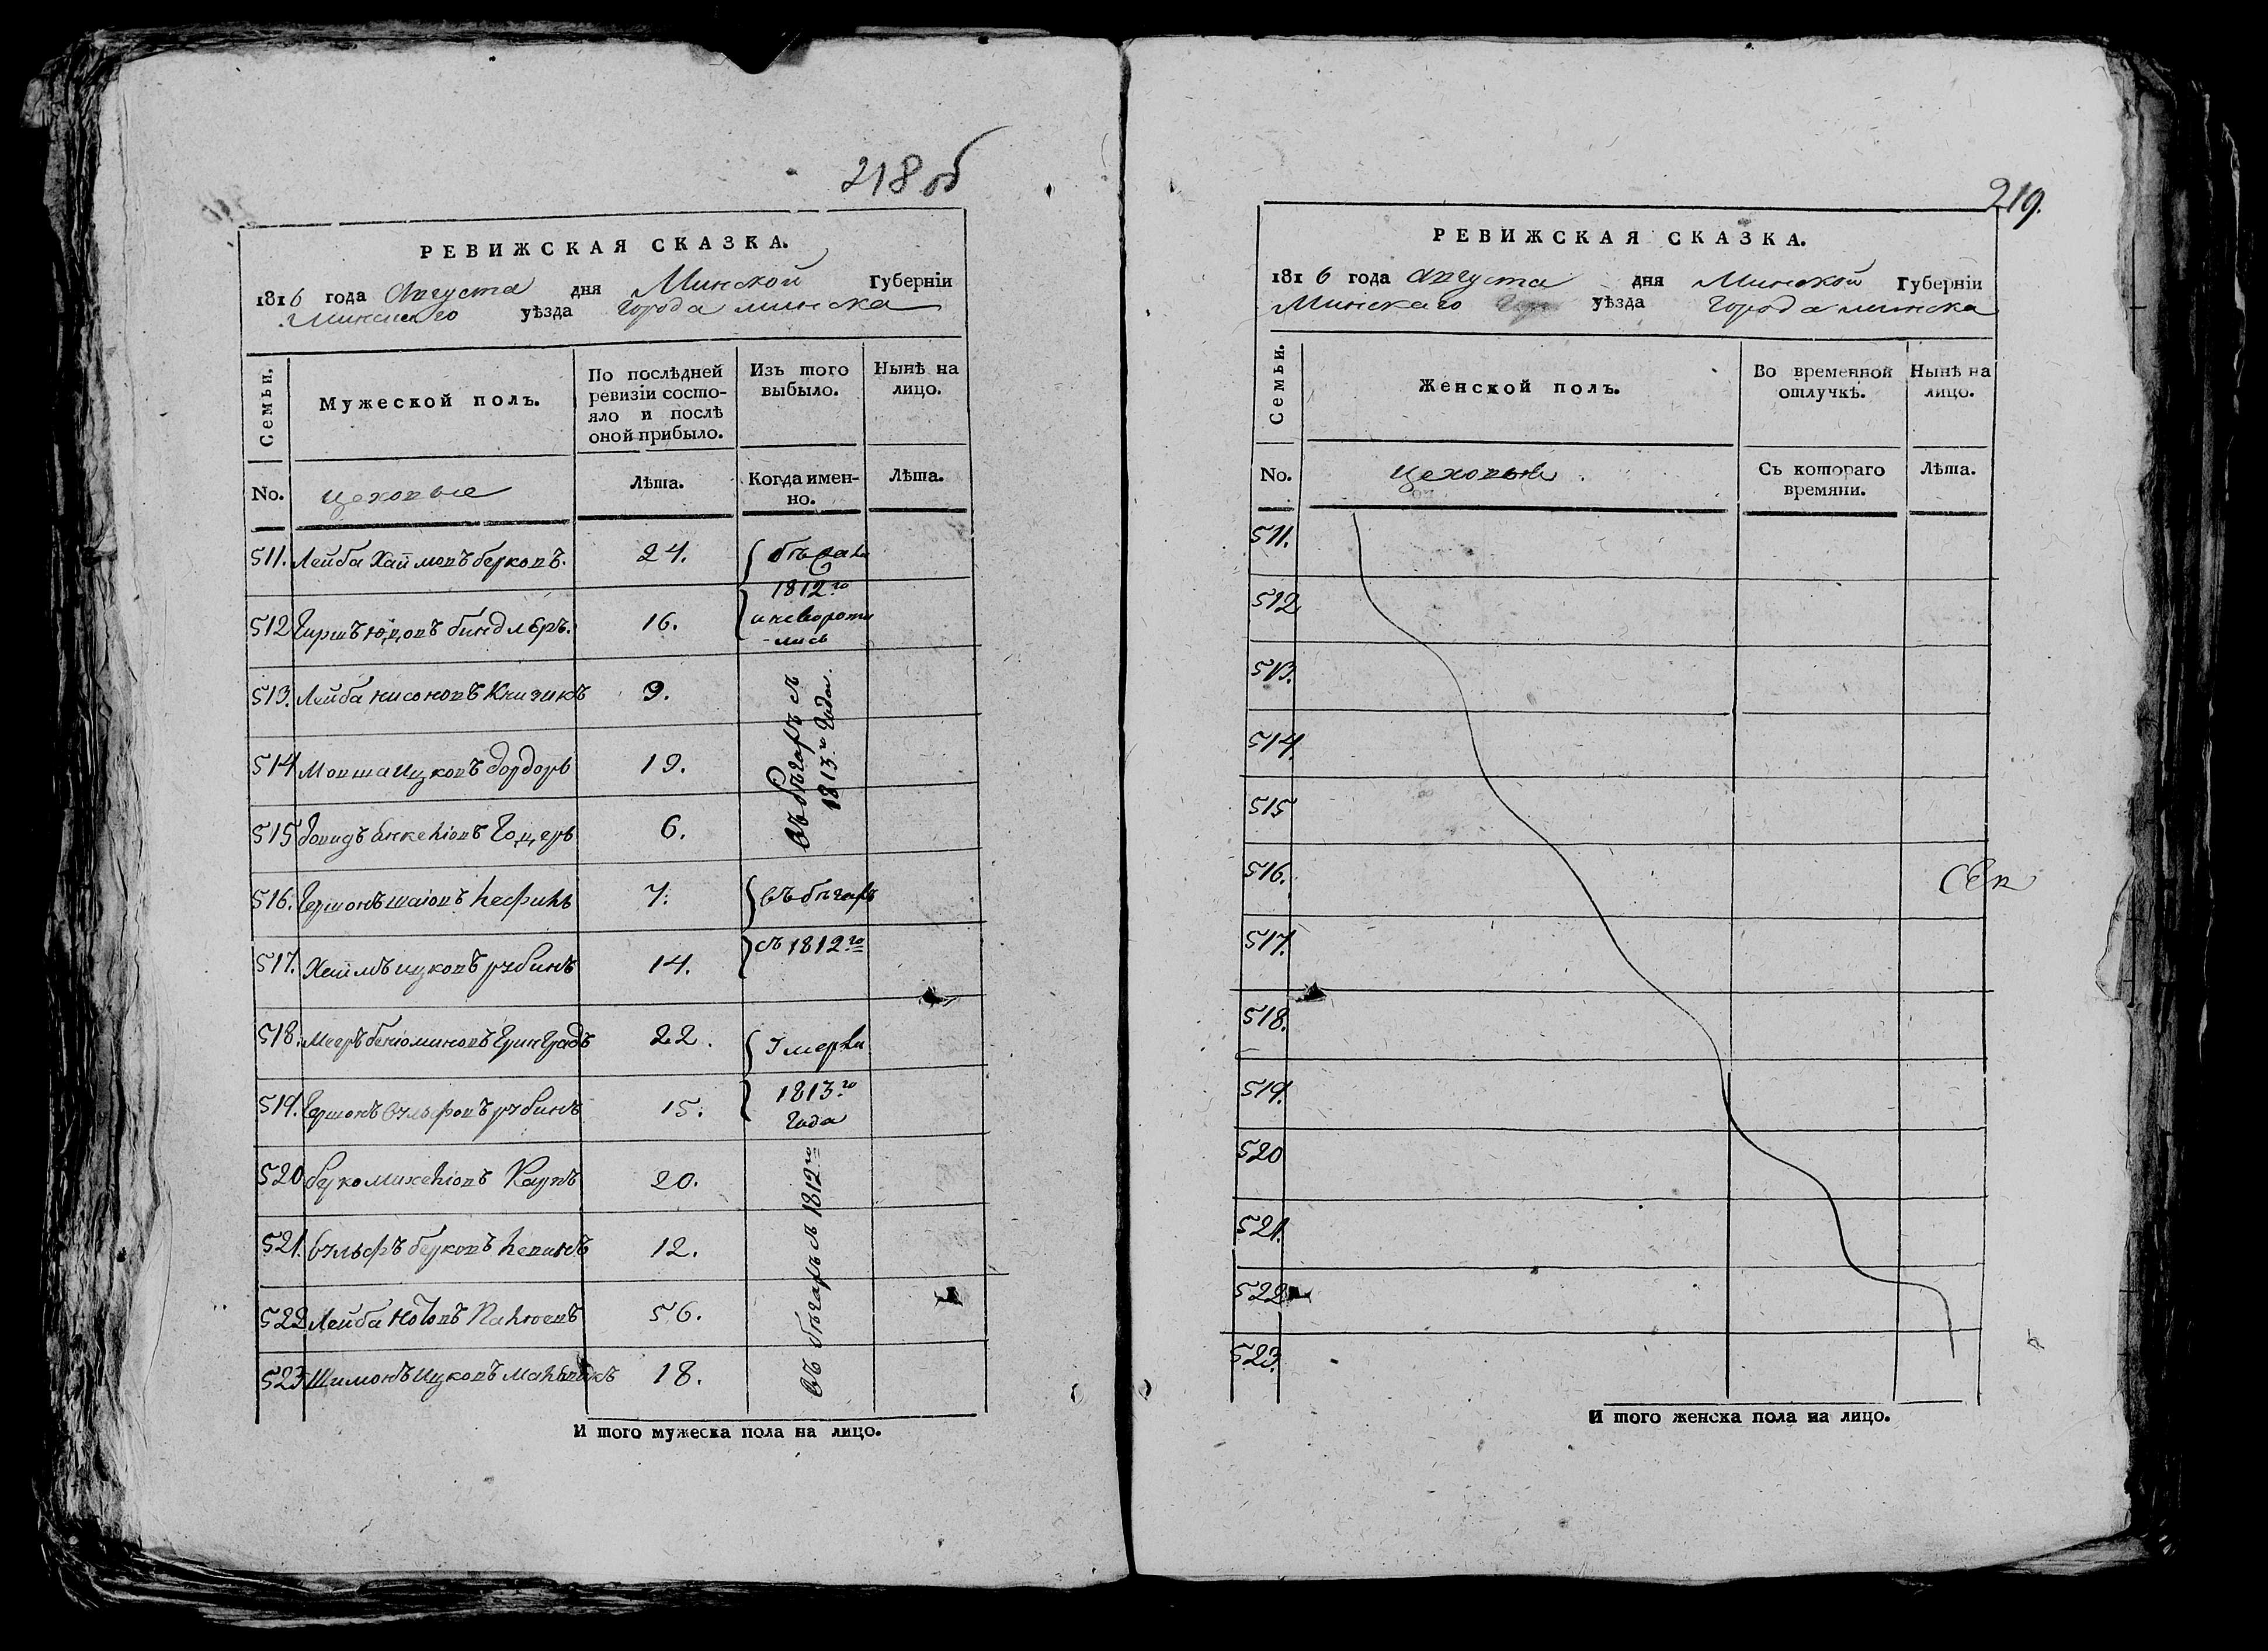 218 об
РЕВИЖСКАЯ СКАЗКА.
1816 года Августа дня Минской Губерніи
Минскаго уѣзда Города минска
Семьи.
Мужеской полъ.
По послѣдней ревизіи состояло и послѣ оной прибыло.
Изъ того выбыло.
Нынѣ на лицо.
No.
цеховые
Лѣта.
Когда именно.
Лѣта.
511. Лейба Хаймовъ берковъ. 24. бѣжали
1812го
512 Гиршъ Юдовъ биндлеръ. 16. и неворотились
513. Лейба нисоновъ Книзикъ 9.
въ бѣгахъ съ 1813го Года.
514 Мовша Ицковъ 19.
515 Довидъ Янкеліовъ 6.
516. Гершонъ шаіовъ 7. въ бѣгахъ
517. Хаимъ ицковъ рубинъ 14. съ 1812го
518. Мееръ беніоминовъ 22. Умерли
519. Гершонъ вульфовъ рубинъ 15. 1813го
Года
520 берко михеліовъ 20.
въ бѣгахъ съ 1812го
521. вульфъ берковъ левинъ 12.
522 Лейба Нотовъ 56.
523 Шимонъ Ицковъ 18.
И того мужеска пола на лицо.
219.
РЕВИЖСКАЯ СКАЗКА.
1816 года Августа дня Минской Губерніи
Минскаго уѣзда Города минска
Семьи.
Женской полъ.
Во временной отлучкѣ.
Нынѣ на лицо.
No.
цеховые
Съ котораго времяни.
Лѣта.
511.
512
513.
514.
515
516.
517.
518.
519.
520
521.
522
523.
И того женска пола на лицо.